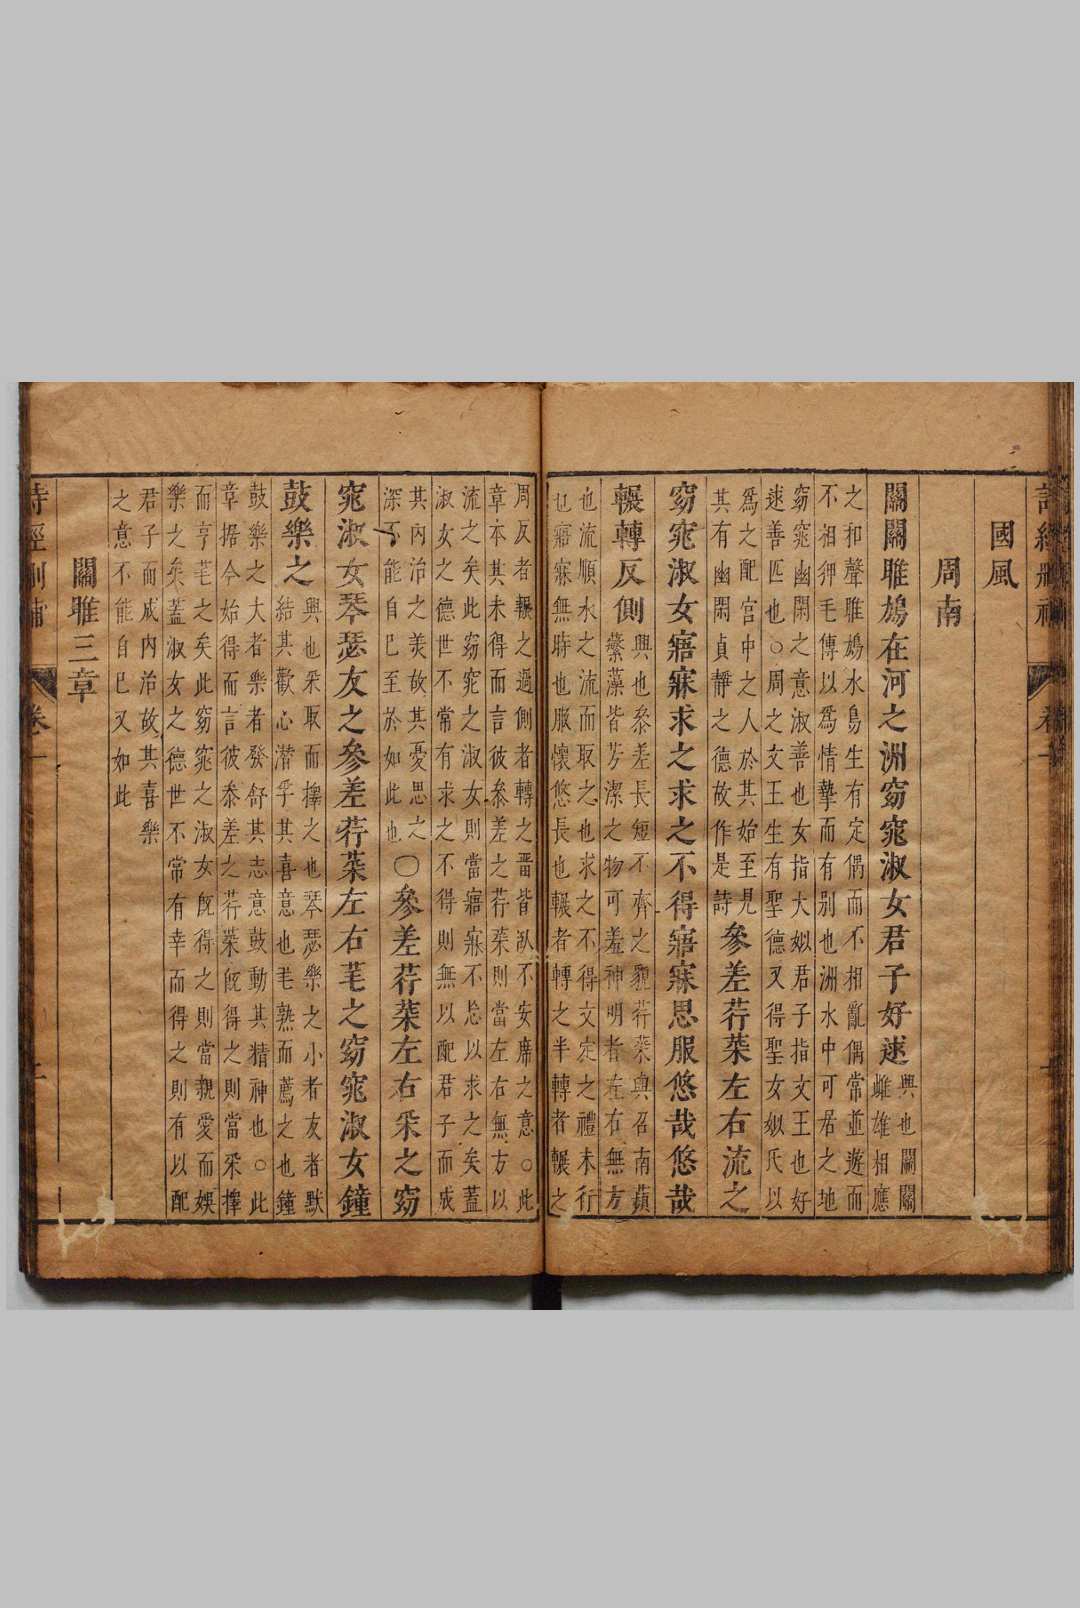 國風
周南
關關雎鳩在河之洲窈窕淑女君子好逑興也關關
雌雄相應
之和聲雎鳩水鳥生有定偶而不相亂偶常並遊而
不相狎毛傳以爲情摯而有別也洲水中可居之地
窈窕幽閑之意淑善也女指大姒君子指文王也好
逑善匹也○周之文王生有聖德又得聖女姒氏以
爲之配宮中之人於其始至見
其有幽閑貞靜之德故作是詩參差荇菜左右流之
窈窕淑女寤寐求之求之不得寤寐思服悠哉悠哉
輾轉反側興也參差長短不齊之貌荇菜與召南蘋
蘩藻皆芳潔之物可羞神明者左右無方
也流順水之流而取之也求之不得文定之禮未行
也寤寐無時也服懷悠長也輾者轉之半轉者輾之
周反者輾之過側者轉之畱皆臥不安席之意○此
章本其未得而言彼參差之荇菜則當左右無方以
流之矣此窈窕之淑女則當寤寐不忘以求之矣蓋
淑女之德世不常有求之不得則無以配君子而成
其內治之美故其憂思之
深不能自已至於如此也○參差荇菜左右采之窈
窕淑女琴瑟友之參差荇菜左右芼之窈窕淑女鐘
鼓樂之興也采取而擇之也琴瑟樂之小者友者默
結其歡心潛孚其喜意也芼熟而薦之也鐘
鼓樂之大者樂者發舒其志意鼓動其精神也○此
章據今始得而言彼參差之荇菜旣得之則當采擇
而亨芼之矣此窈窕之淑女旣得之則當親愛而娛
樂之矣蓋淑女之德世不常有幸而得之則有以配
君子而成內治故其喜樂
之意不能自已又如此
關雎三章
詩經刪補 卷一